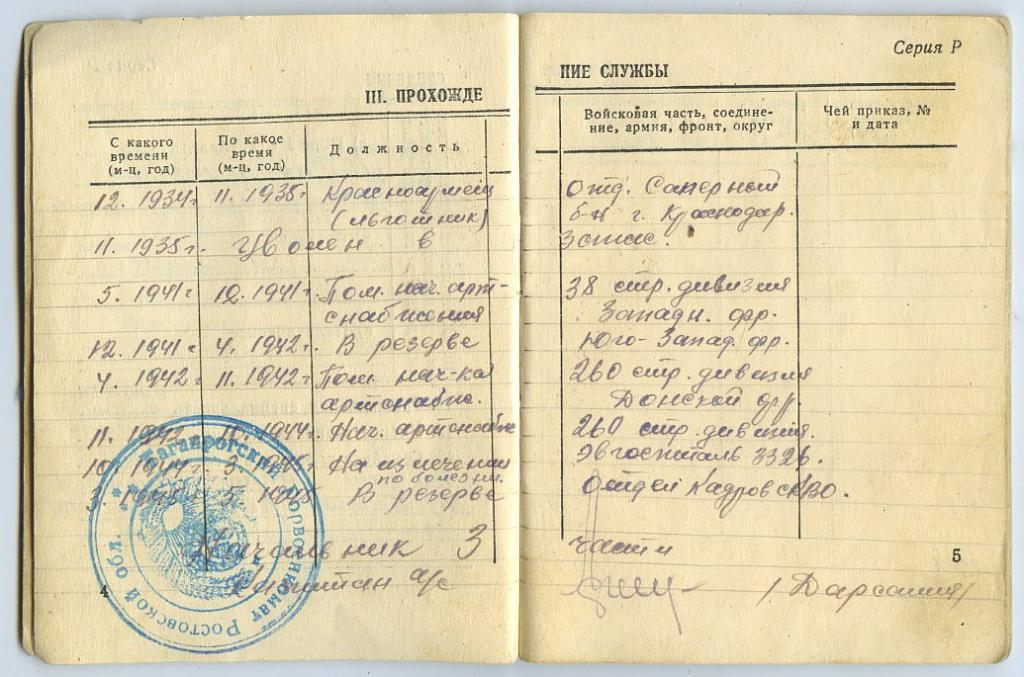 Серия Р
III. ПРОХОЖДЕ
НИЕ СЛУЖБЫ
С какого времени (м-ц, год)
По какое время (м-ц, год)
Должность
Войсковая часть, соедине-
ние, армия, фронт, округ
Чей приказ, №
и дата
12. 1934г. 11. 1935г. Красноармеец Отд. Саперный
(льготник) б-н г. Краснодар.
11. 1935г. Уволен в Запас.
5. 1941г 12. 1941г. Пом. нач. арт- 38 стр. дивизия
снабжения Западн. фр.
12. 1941г 4. 1942г. В резерве Юго-Запад. фр.
4. 1942г. 11. 1942г. Пом. нач-ка 260 стр. дивизия
артснабж. Донской фр.
11. 1942 10. 1944г. Нач. артснабж 260 стр. дивизия.
10. 1944г. 3. 1945г На излечении Эвгоспиталь 3326.
по болезни.
3. 1945 5. 1945 В резерве Отдел Кадров СКВО.
Начальник 3 части
Капитан а/с
4
5
Таганрогский Горвоенкомат Ростовской обл.